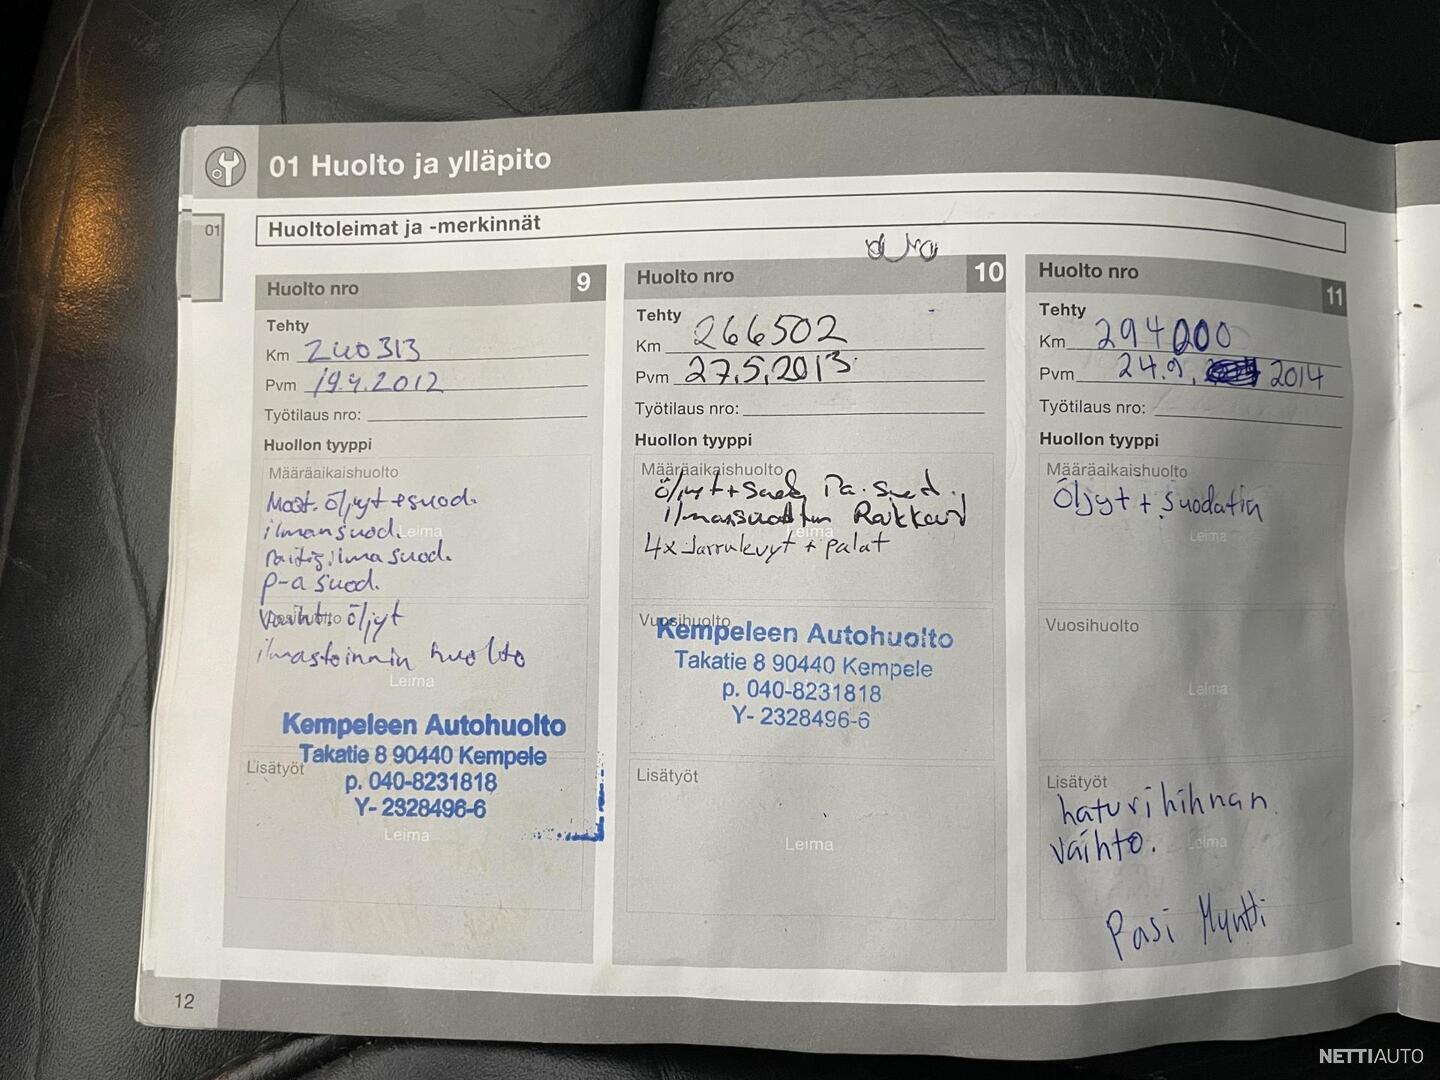 01 Huolto ja ylläpito
01
Huoltoleimat ja -merkinnät
Huolto nro 9
Tehty
Km 240313
Pvm 19.4.2012
Työtilaus nro:
Huollon tyyppi
Määräaikaishuolto
Moot. öljyt + suod.
ilmansuod.
Leima
raitis.ilma suod.
p-a suod.
Vuosihuolto
öljyt
ilmastoinnin huolto
Leima
Kempeleen Autohuolto
Takatie 8 90440 Kempele
Lisätyöt
p. 040-8231818
Y- 2328496-6
Leima
Huolto nro 10
Tehty
Km 266502
Pvm 27.5.2013
Työtilaus nro:
Huollon tyyppi
Määräaikaishuolto
Öljyt + suod. Pa. suod.
ilmansuodatin
Leima
4x Jarrulevyt + palat
Vuosihuolto
Kempeleen Autohuolto
Takatie 8 90440 Kempele
Leima
p. 040-8231818
Y- 2328496-6
Lisätyöt
Leima
Huolto nro 11
Tehty
Km 294000
Pvm 24.9. 2014
Työtilaus nro:
Huollon tyyppi
Määräaikaishuolto
Öljyt + suodatin
Leima
Vuosihuolto
Leima
Lisätyöt
haturihihnan
vaihto.
Leima
Pasi Myntti
12
NETTIAUTO